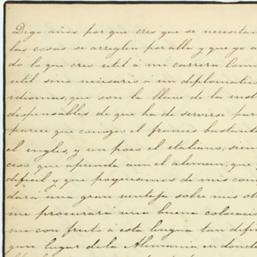 Digo años por que creo que se necesitan
las cosas se arreglen por alla y que yo a
do lo que creo util á mi carrera. Como
util sino necesario á un diplomatico
idiomas, que son la llave de la inst
dispensables de que ha de servirse par
parece que conozco el frances bastante
el ingles, y un poco el italiano, sien
creo que aprenda aun el aleman, que
dificil, y que proporciona de mis con
dará una gran ventaja sobre mis ot
me procurará una buena colocacion
con fruto á esta lengua tan dificil
gun lugar de la Alemania en donde